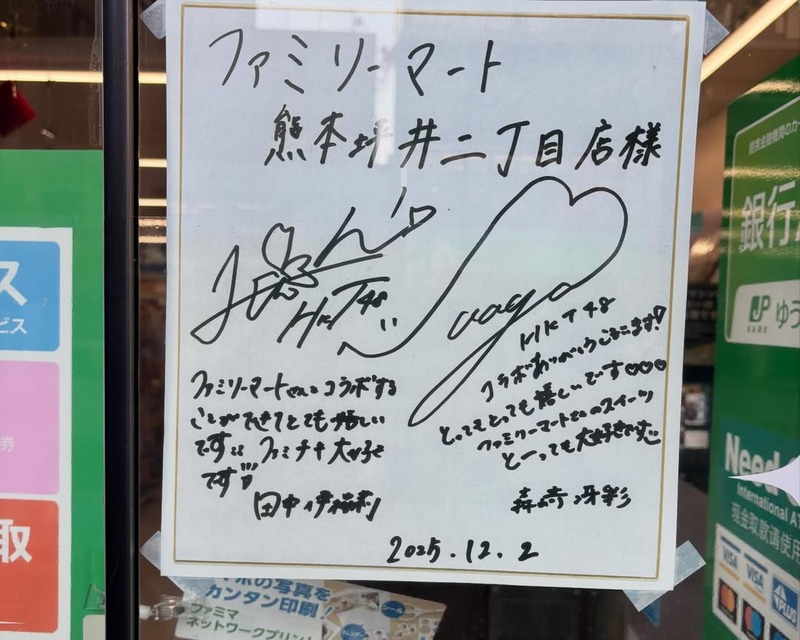 ファミリーマート
熊本坪井二丁目店様
HKT48
HKT48
ファミリーマートさんとコラボする
ことができてとても嬉しい
です!! ファミチキ大好き
です!!!
田中伊桜莉
コラボありがとうございます!
とってもとっても嬉しいです♡♡♡
ファミリーマートさんのスイーツ
とーっても大好きです
森﨑冴彩
2025.12.2
ス
ビス
券
取
銀行
JP
BANK
ゆう
Need
International A
現金取款请使用
VISA
VISA
PLUS
の写真を
カンタン印刷!
ファミマ
ネットワークプリント